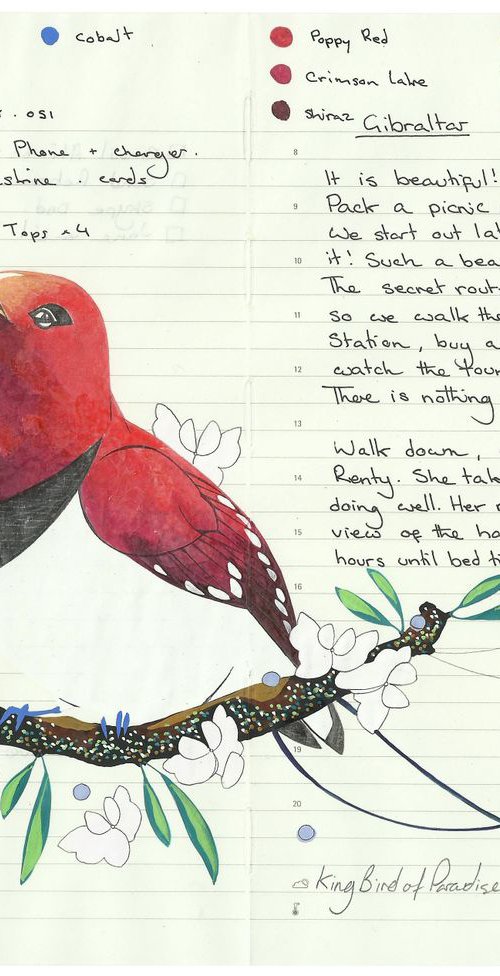 cobalt
. 051
Phone + charger.
shine . cards
Tops x4
Poppy Red
Crimson Lake
Shiraz
Gibraltar
8
It is beautiful!
9
Pack a picnic
we start out lat
10
it! Such a bea
The secret rout
11
so we walk the
Station, buy a
12
watch the tour
There is nothing
13
Walk down,
14
Renty. She tak
doing well. Her
15
view of the ha
hours until bed ti
16
19
20
King Bird of Paradise